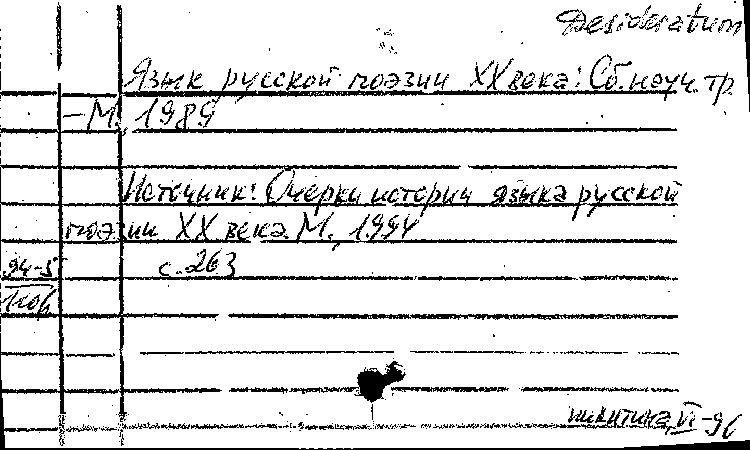 Desideratum
Язык русской поэзии XX века: Сб. науч. тр.
– М., 1989
Источник: Очерки истории языка русской
поэзии XX века. М., 1994
с. 263
94-5
никитина, VI-96